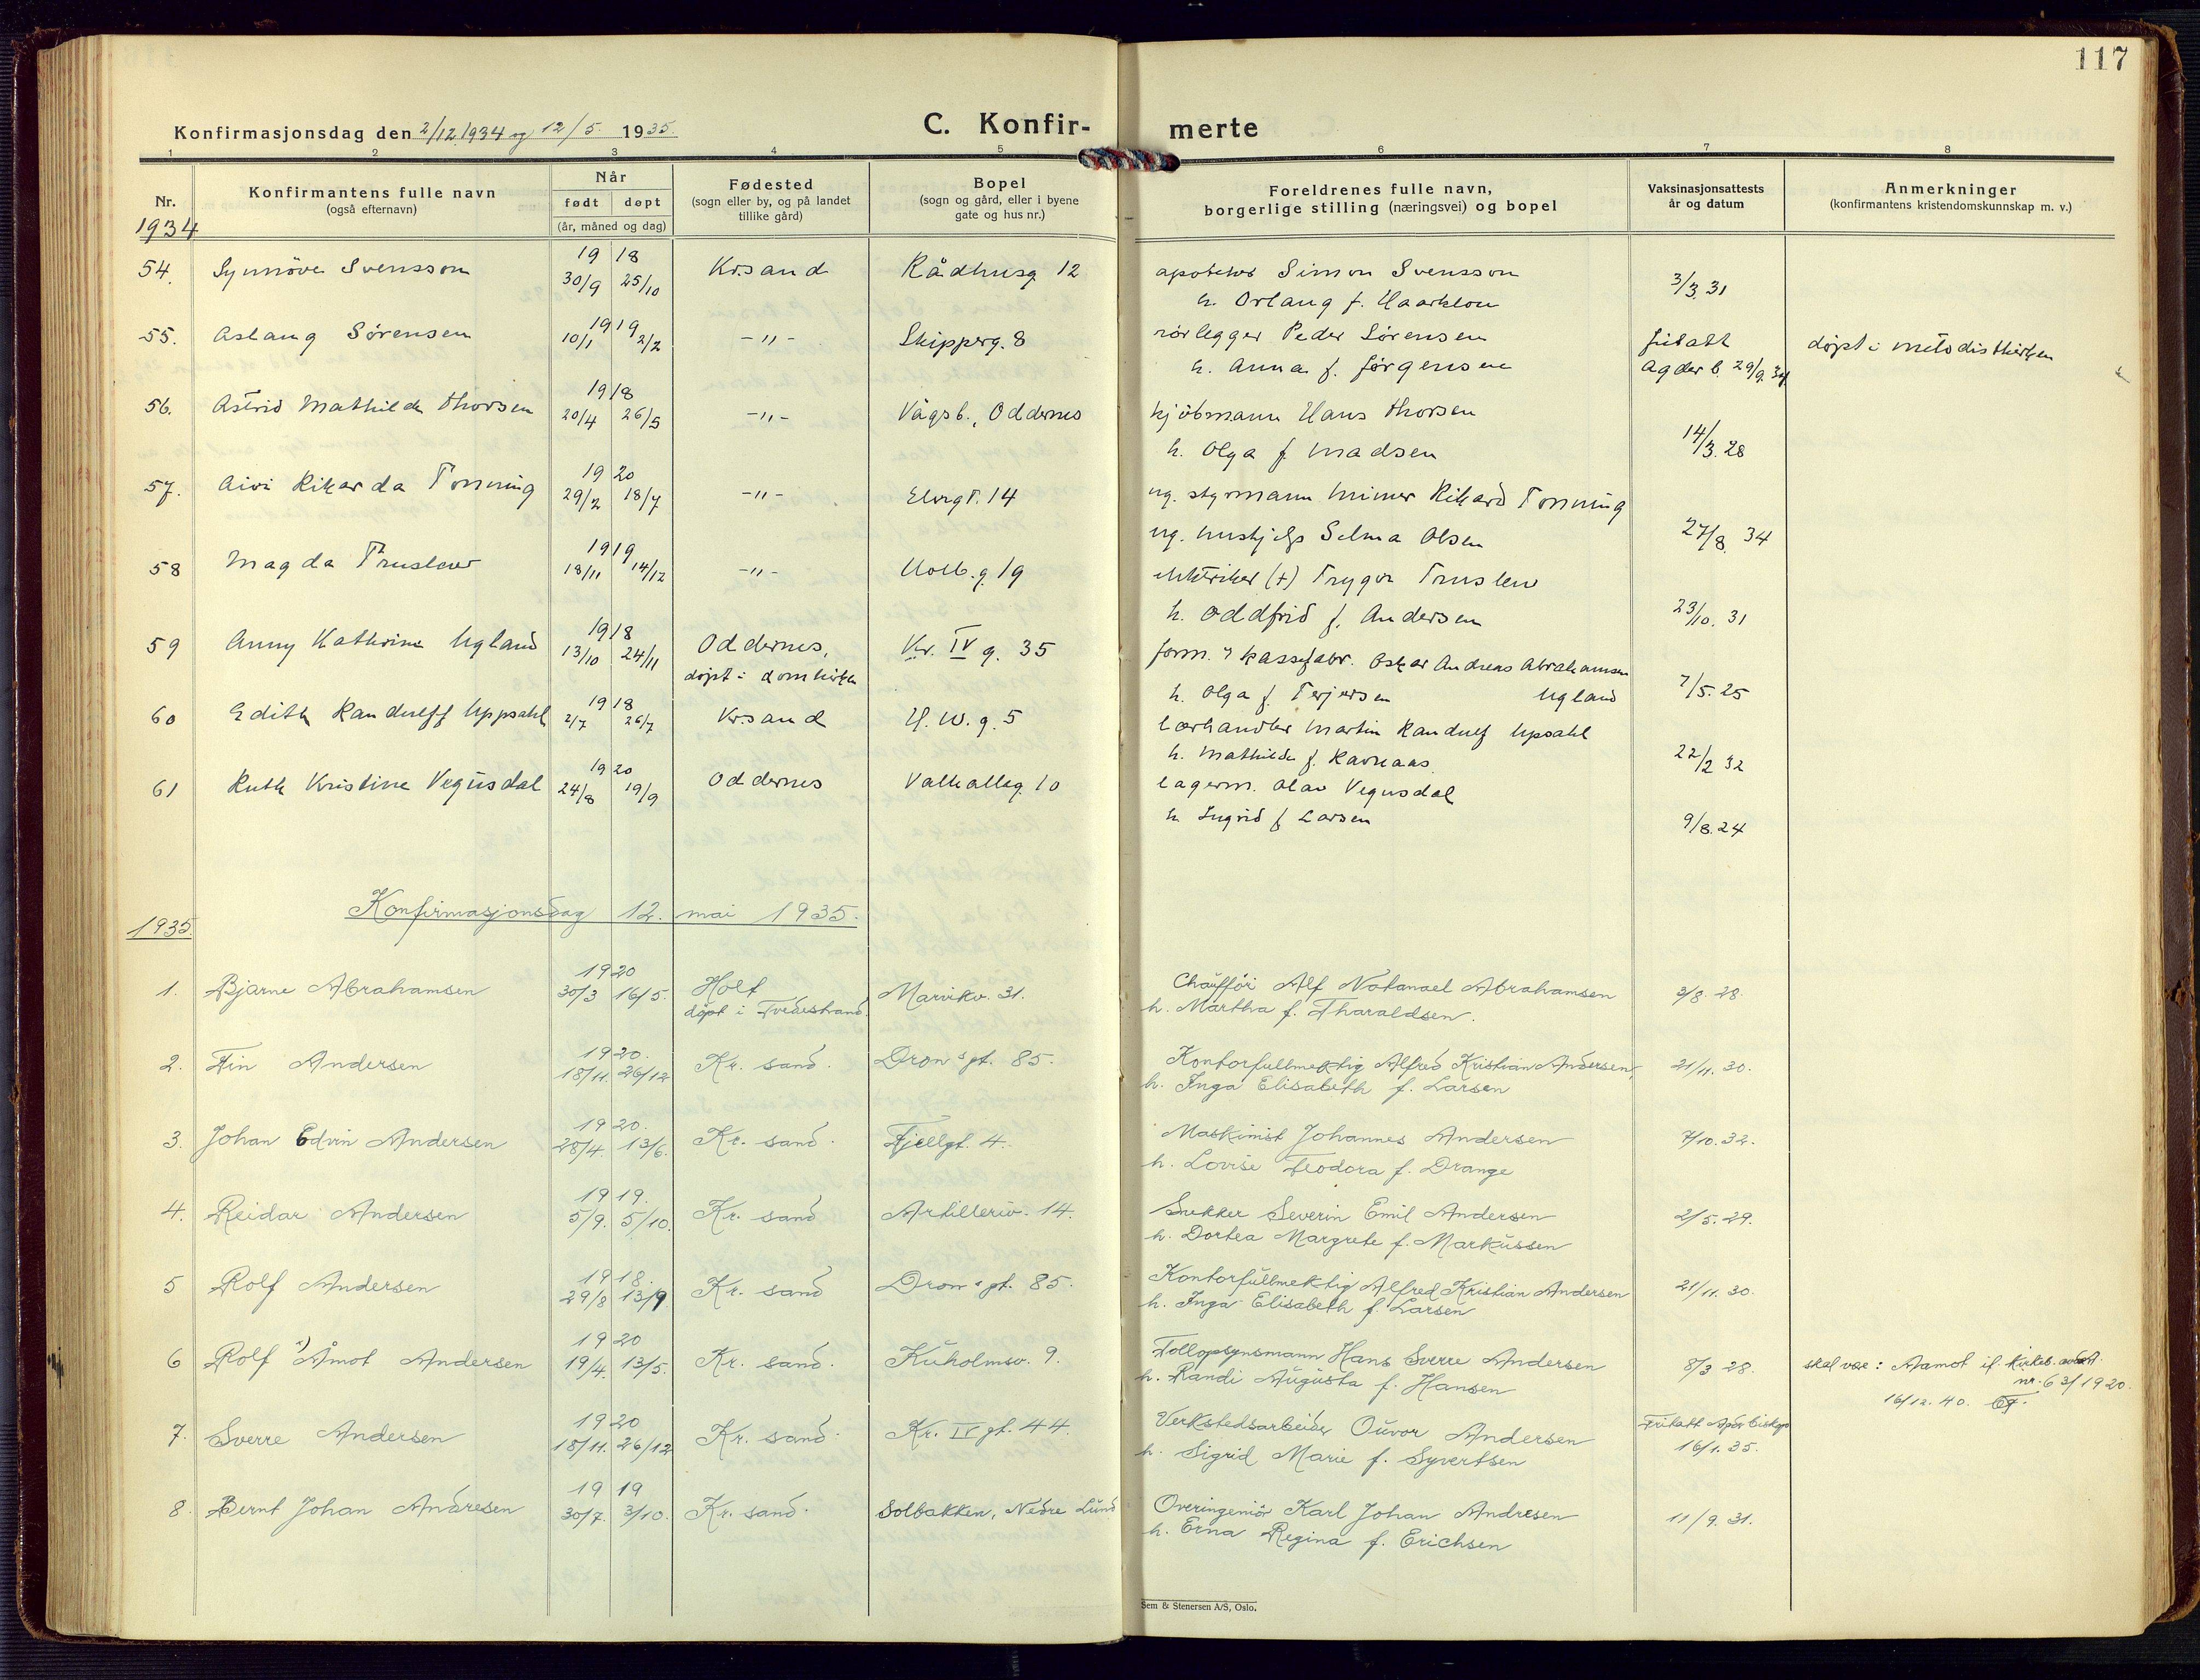 117
Konfirmasjonsdag den 2/12 1934 og 12/5 1935.
C. Konfir- merte
1 2 3 4 5 6 7 8
Nr. Konfirmantens fulle navn (også efternavn) Når født døpt (år, måned og dag) Fødested (sogn eller by, og på landet tillike gård) Bopel (sogn og gård, eller i byene gate og hus nr.) Foreldrenes fulle navn, borgerlige stilling (næringsvei) og bopel Vaksinasjonsattests år og datum Anmerkninger (konfirmantens kristendomskunnskap m. v.)
1934
54. Synnöve Svensson 1918 30/9 25/10 Kr.sand Rådhusg 12 apoteker Simon Svensson
h. Orlaug f. Haarklou 3/3. 31
55. Aslaug Sørensen 1919 10/1 2/2 -"- Skipperg. 8 rørlegger Peder Sørensen fritatt døpt i metodistkirken
h. Anna f. Jørgensen Agder b. 29/9. 34
56. Astrid Mathilde Thorsen 1918 20/4 26/5 -"- Vågsb., Oddernes kjöbmann Hans Thorsen
h. Olga f. Madsen 14/3. 28
57. Aivi Rikarda Tønning 1920 29/2 18/7 -"- Elvegt. 14 ug. styrmann Mimer Rikard Tønning
ug. hushjelp Selma Olsen 27/8. 34
58 Magda Truslew 1919 18/11 14/12 -"- Holb.g. 19 elektriker (+) Trygve Truslew
h. Oddfrid f. Andersen 23/10. 31
59 Anny Kathrine Ugland 1918 13/10 24/11 Oddernes, Kr. IV g. 35 form. i kassefabr. Oskar Andreas Abrahamsen
døpt i domkirken h. Olga f. Terjersen Ugland 7/5. 25
60 Edith Randulff Uppsahl 1918 2/7 26/7 Kr.sand H. W. g. 5 lærhandler Martin Randulf Upsahl
h. Mathilde f. Ravnaas 22/2 32
61 Ruth Kristine Vegusdal 1920 24/8 19/9 Oddernes Valhallag. 10 lagerm. Olav Vegusdal
h Ingrid f Larsen 9/8. 24
Konfirmasjonsdag 12. mai 1935.
1935.
1. Bjarne Abrahamsen 1920 30/3 16/5. Holt Marvikv. 31. Chauffør Alf Natanael Abrahamsen 3/8. 28.
døpt i Tvedestrand. h. Martha f. Tharaldsen.
2. Fin Andersen 1920. 18/11. 26/12 Kr. sand. Dron.s gt. 85. Kontorfullmektig Alfred Kristian Andersen, 21/11. 30.
h. Inga Elisabeth f. Larsen
3. Johan Edvin Andersen 1920. 28/4. 13/6. Kr. sand. Fjellgt. 4. Maskinist Johannes Andersen 7/10. 32.
h. Lovise Teodora f. Drange
4. Reidar Andersen 1919. 5/9. 5/10. Kr. sand Artilleriv. 14. Snekker Severin Emil Andersen 2/5. 29.
h. Dortea Margrete f. Markussen
5 Rolf Andersen 1918. 29/8 13/9 Kr. sand Dron.s gt. 85. Kontorfullmektig Alfred Kristian Andersen 21/11. 30.
h. Inga Elisabeth f. Larsen
6 Rolf Åmot Andersen 1920 19/4. 13/5. Kr. sand. Kuholmsv. 9. Tollopsynsmann Hans Sverre Andersen 8/3 28. skal være: Aamot if. kirkeb.
h. Randi Augusta f. Hansen nr. 63/1920.
16/12. 40.
7. Sverre Andersen 1920 18/11. 26/12 Kr. sand. Kr. IV gt. 44. Verkstedsarbeider Ouvor Andersen Fritatt Agder biskop
h. Sigrid Marie f. Syvertsen 16/1. 35.
8. Bernt Johan Andresen 1919 30/7. 3/10. Kr. sand. Solbakken, Nedre Lund Overingeniör Karl Johan Andresen 11/9. 31.
h. Erna Regina f. Erichsen
Sem & Stenersen A/S, Oslo.